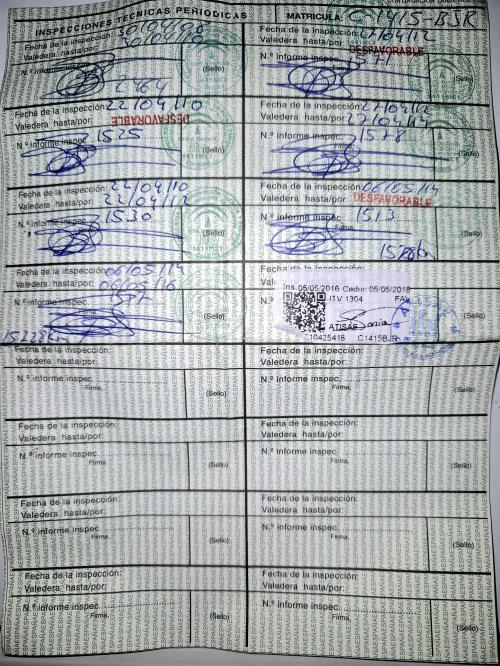 INSPECCIONES TECNICAS PERIODICAS
MATRICULA: C-1415-BJR
Fecha de la inspección: 30/04/08
Valedera hasta/por: 30/04/10
N.º informe inspec.
2464
(Sello)
Fecha de la inspección: 27/04/12
Valedera hasta/por:
DESFAVORABLE
N.º informe inspec. 1571
(Sello)
Fecha de la inspección: 22/04/10
Valedera hasta/por:
DESFAVORABLE
N.º informe inspec. 1525
(Sello)
Fecha de la inspección: 27/04/12
Valedera hasta/por: 27/04/14
N.º informe inspec. 1578
(Sello)
Fecha de la inspección: 22/04/10
Valedera hasta/por: 22/04/12
N.º informe inspec. 1530
(Sello)
Fecha de la inspección: 06/05/14
Valedera hasta/por:
DESFAVORABLE
N.º informe inspec. 1513
Firma.
(Sello)
Fecha de la inspección: 06/05/14
Valedera hasta/por: 06/05/16
N.º informe inspec.
15228km
(Sello)
Ins.05/05/2016 Cadur.05/05/2018
ITV 1304 FAV
ATISAE
10425416 C1415BJR
(Sello)
Fecha de la inspección:
Valedera hasta/por:
N.º informe inspec.
Firma.
(Sello)
Fecha de la inspección:
Valedera hasta/por:
N.º informe inspec.
Firma.
(Sello)
Fecha de la inspección:
Valedera hasta/por:
N.º informe inspec.
Firma.
(Sello)
Fecha de la inspección:
Valedera hasta/por:
N.º informe inspec.
Firma.
(Sello)
Fecha de la inspección:
Valedera hasta/por:
N.º informe inspec.
Firma.
(Sello)
Fecha de la inspección:
Valedera hasta/por:
N.º informe inspec.
Firma.
(Sello)
Fecha de la inspección:
Valedera hasta/por:
N.º informe inspec.
Firma.
(Sello)
Fecha de la inspección:
Valedera hasta/por:
N.º informe inspec.
Firma.
(Sello)